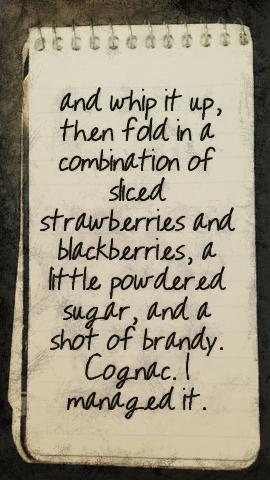 and whip it up,
then fold in a
combination of
sliced
strawberries and
blackberries, a
little powdered
sugar, and a
shot of brandy.
Cognac. I
managed it.